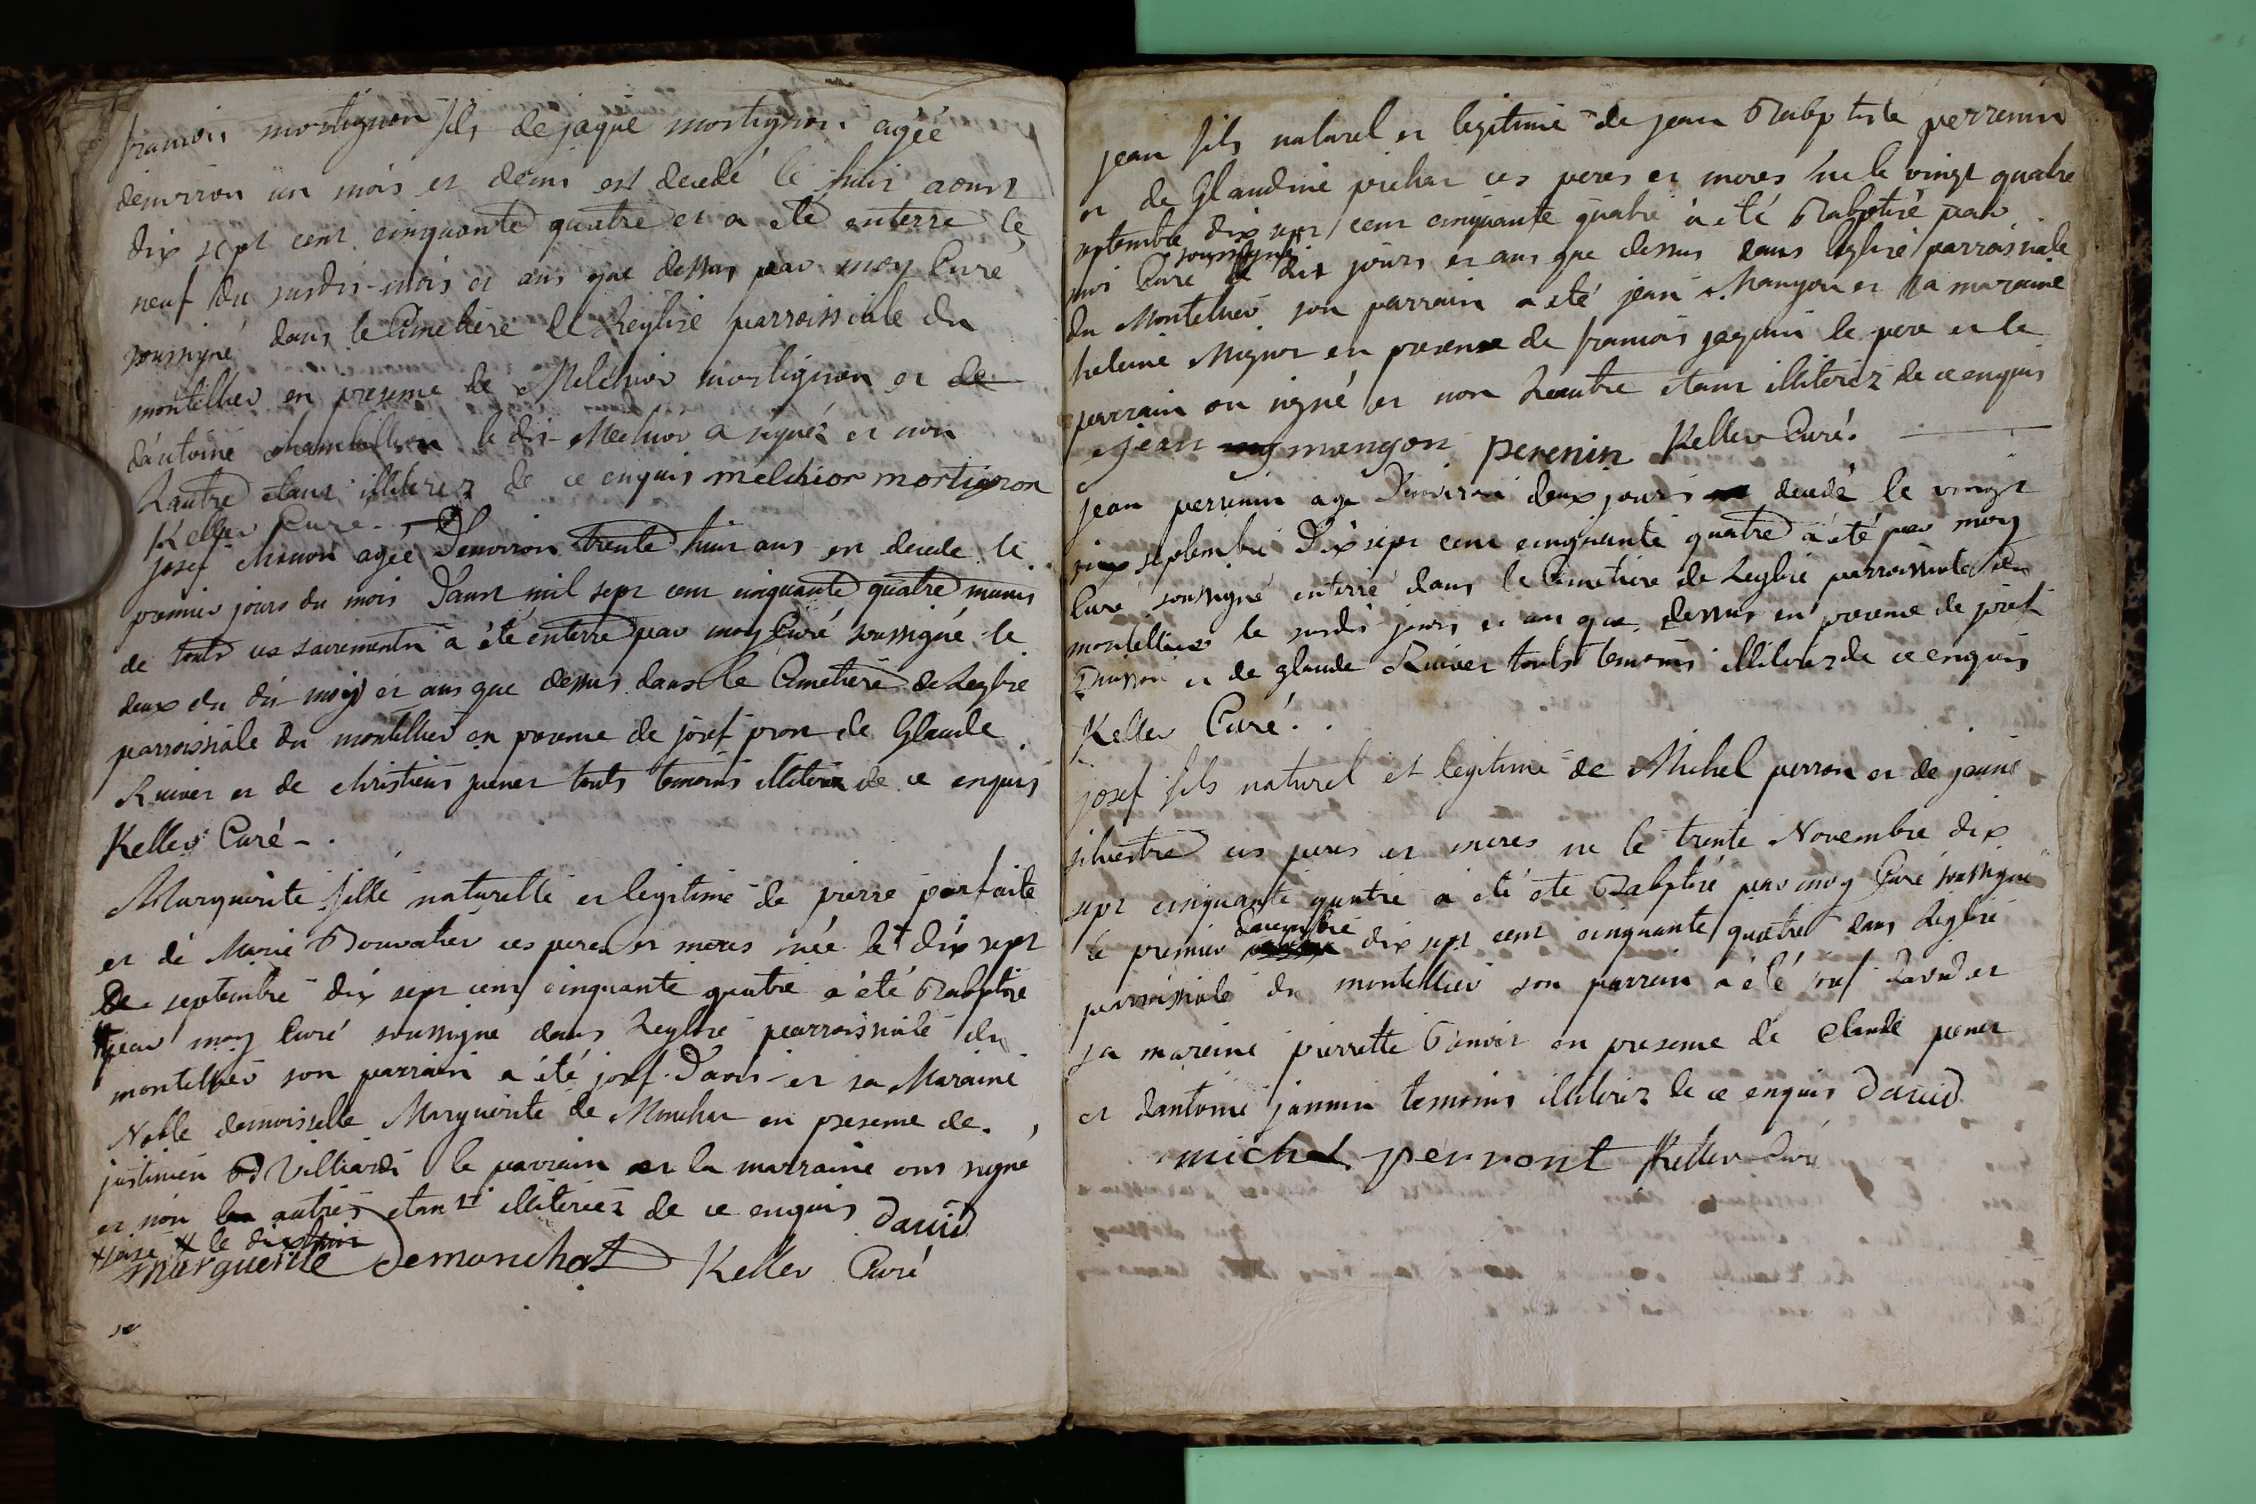 francois mortignon fils de jaque mortignon agée
denvirron un mois et demi est decedé le huit aoust
dix sept cent cinquante quatre et a eté enterre le
neuf du susdit mois et ans que dessus par moy Curé
soussigné dans le Cimetiere de Leglise parroissiale du
montellier en presence de Melchior mortignon et de
d'antoine le dit Melchior a signéz et non
Lautre etant illiterez de ce enquis melchior mortignon
Keller Cure.
josef Monon agée D'environ trente huit ans est decede le
premier jours du mois D'aust mil sept cent cinquante quatre munis
de touts ces sacrements a été enterre par moy Curé soussigné le
deux du dit mois et ans que dessus dans le Cimetiere de Leglise
parroissiale du montellier en presence de josef pron de Glaude
Ruivet et de christiens pener touts temoins illiterez de ce enquis
Keller Curé.
Marguerite fille naturelle et legitime de pierre parfaite
et de Marie Bouvatier ces peres et meres née le + dix sept
De septembre dix sept cent cinquante quatre a été Babptise
# par moy Curé soussigné dans Leglise parroissiale du
montellier son parrain a été josef David et sa Maraine
Noble demoiselle Marguerite de Monchat en presence de
justinien Villiard le parrain et la marraine ont signé
et non les autres etant illiterez de ce enquis David
+ seize # le dixhuit
marguerite Demonchat Keller Curé
jean fils naturel et legitime de jean Babptiste perrenin
et de Glaudine pichat ces peres et meres ne le vingt quatre
septembre dix sept cent cinquante quatre a été Babptisé par
moi Curé soussigné dit jours et ans que dessus dans leglise parroissiale
du Montellier son parrain a eté jean Mangon et sa maraine
heleine Mignot en presence de francois jaquin le pere et le
parrain on signé et non Leautre etant illiterez de ce enquis
jean mangon perenin Keller Curé.
jean perrenin age D'environ deux jours decedé le vingt
six septembre Dix sept cent cinquante quatre a été par moy
Curé soussigné enterré dans le Cimetiere de Leglise parroissiale du
montellier le susdit jours et an que dessus en presence de josef
et de glaude Ruivet touts temoins illiterez de ce enquis
Keller Curé.
josef fils naturel et legitime de Michel perron et de jeane
silvestre ces peres et meres ne le trente Novembre dix
sept cinquante quatre a été ete Babptisé par moy Curé soussigné
le premier decembre dix sept cent cinquante quatre dans Leglise
parroissiale du montellier son parrain a été josef David et
sa mareine pierrette en presence de Claude pener
et dantoine jannin temoins illiterez de ce enquis David
michel perront Keller Curé